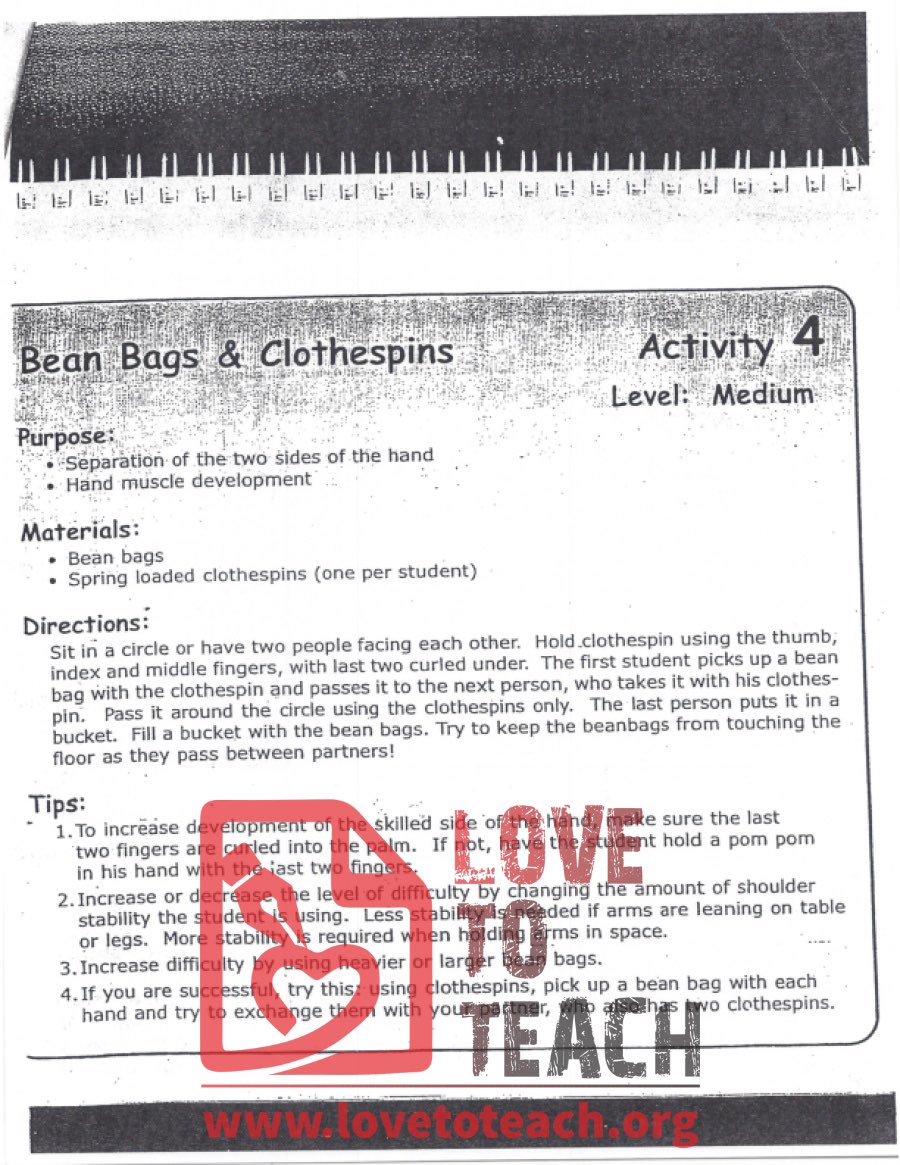 Bean Bags & Clothespins
Activity 4
Level: Medium
Purpose:
• Separation of the two sides of the hand
• Hand muscle development
Materials:
• Bean bags
• Spring loaded clothespins (one per student)
Directions:
Sit in a circle or have two people facing each other. Hold clothespin using the thumb,
index and middle fingers, with last two curled under. The first student picks up a bean
bag with the clothespin and passes it to the next person, who takes it with his clothes-
pin. Pass it around the circle using the clothespins only. The last person puts it in a
bucket. Fill a bucket with the bean bags. Try to keep the beanbags from touching the
floor as they pass between partners!
Tips:
1. To increase development of the skilled side of the hand, make sure the last
two fingers are curled into the palm. If not, have the student hold a pom pom
in his hand with the last two fingers.
2. Increase or decrease the level of difficulty by changing the amount of shoulder
stability the student is using. Less stability is needed if arms are leaning on table
or legs. More stability is required when holding arms in space.
3. Increase difficulty by using heavier or larger bean bags.
4. If you are successful, try this: using clothespins, pick up a bean bag with each
hand and try to exchange them with your partner, who also has two clothespins.
LOVE
TO
TEACH
www.lovetoteach.org